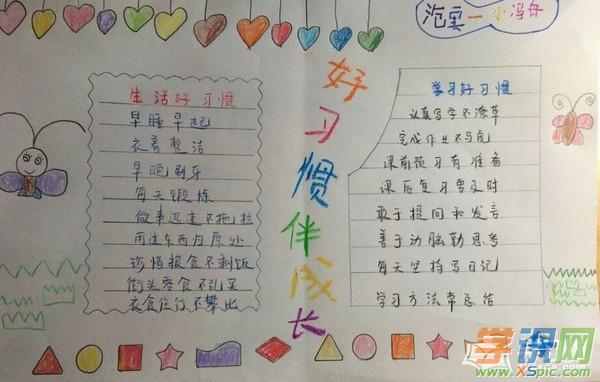 范实一小冯丹
好习惯伴成长
生活好习惯
早睡早起
衣着整洁
早晚刷牙
每天锻炼
做事迅速不拖拉
用法东西为原处
珍惜粮食不剩饭
街头零食不乱买
衣食住行不攀比
学习好习惯
认真写字不潦草
完成作业不马虎
课前预习有准备
课后复习要及时
敢于提问和发言
善于动脑勤思考
每天坚持写日记
学习方法常总结
学课网
www.XSpic.com